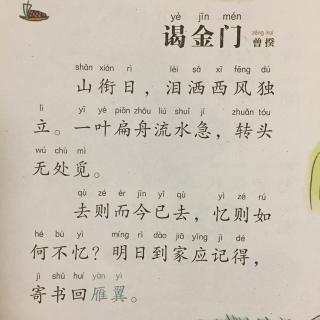 yè jīn mén
谒金门
zēng kuí
曾揆
shān xián rì lèi sǎ xī fēng dú
山衔日，泪洒西风独
lì yī yè piān zhōu liú shuǐ jí zhuǎn tóu
立。一叶扁舟流水急，转头
wú chù mì
无处觅。
qù zé ér jīn yǐ qù yì zé rú
去则而今已去，忆则如
hé bù yì míng rì dào jiā yīng jì dé
何不忆？明日到家应记得，
jì shū huí yàn yì
寄书回雁翼。